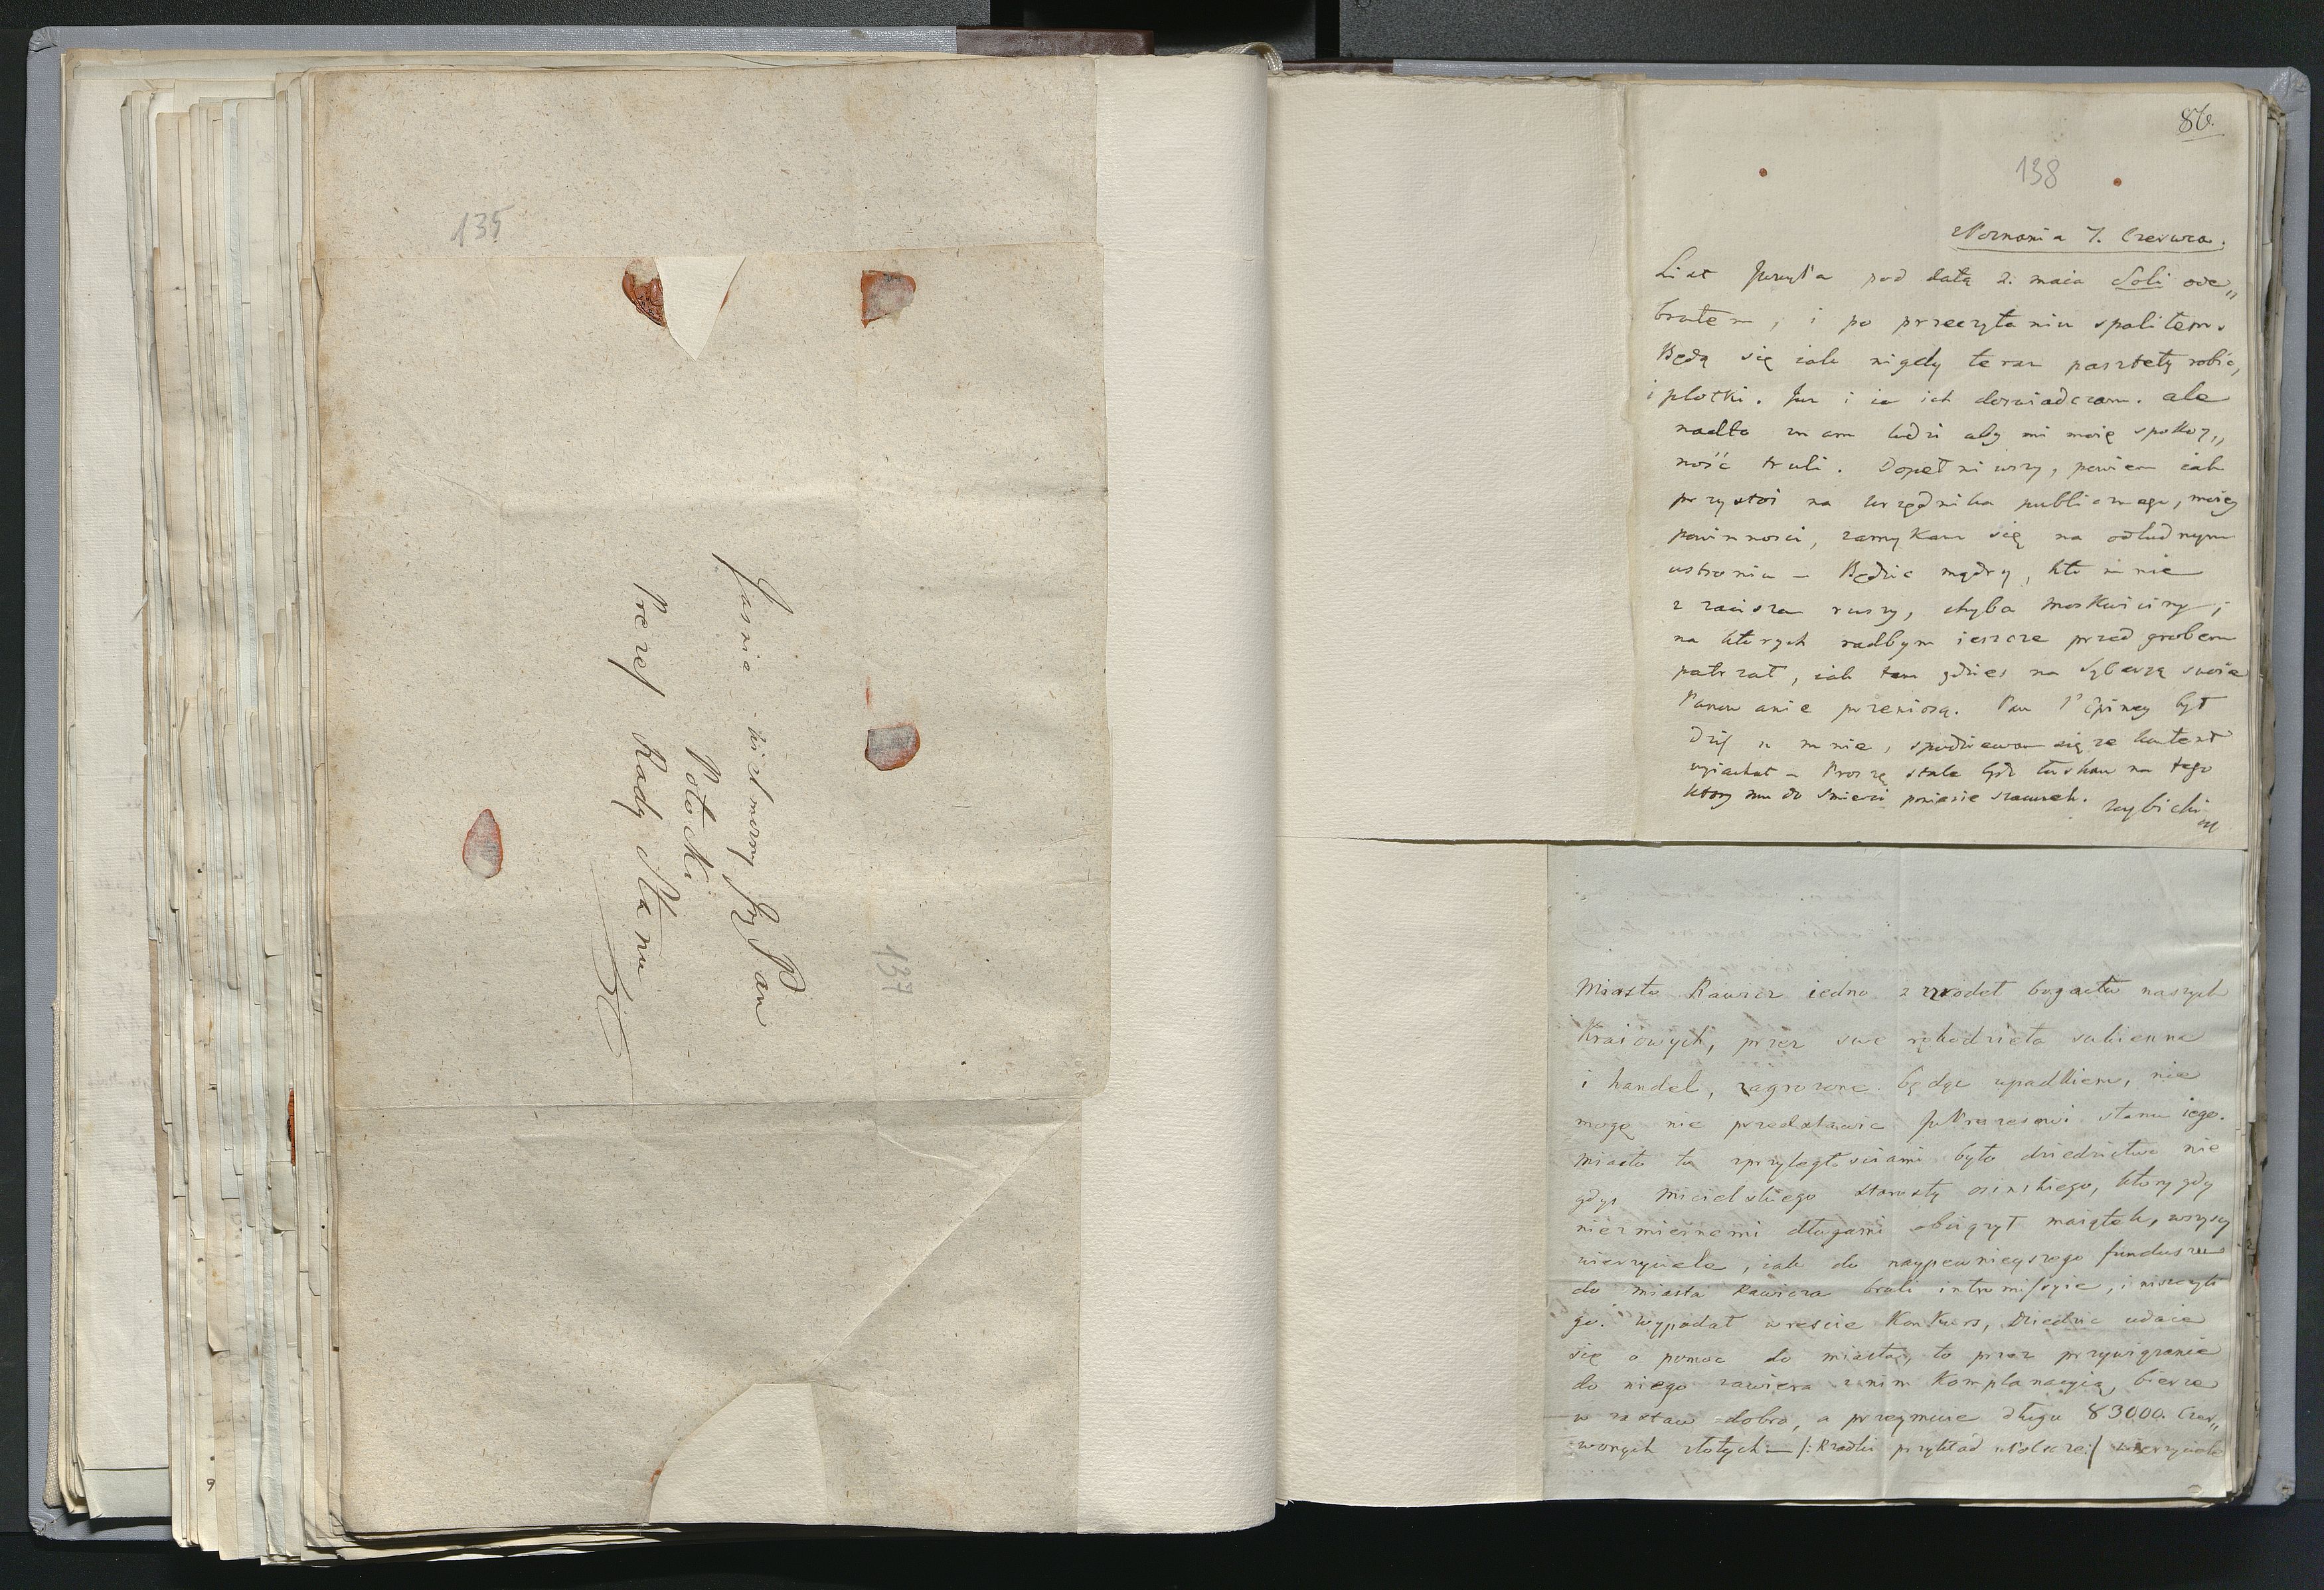 135
Jasnie wielmożny Jmć Pan
Potocki
Prezes Rady Stanu
137
86.
138
z Poznania 7. Czerwca.
List Jwnyśa pod datą 2. maia Soli ode„
brałem, i po przeczytaniu spaliłem.
Będą się iak nigdy teraz pasztety robić,
i plotki. Już i ia ich doświadczam. ale
nadto znam ludzi aby mi moię spokoy„
ność truli. Dopełniwszy, powiem iak
przystoi na urzędnika publicznego, moiey
powinności, zamykam się na odludnym
ustroniu – Będzie mądry, kto mnie
z zacisza ruszy, chyba Moskwiciny;
na których radbym ieszcze przed grobem
patrzał, iak tam gdzieś na Syberyą swoie
Panowanie przeniosą. Pan l'Epiney był
dziś u mnie, spodziewam się że kontent
wyiechał – Proszę stale bydź łaskaw na tego
który mu do śmierci poniesie szacunek. Wybicki
Miasto Rawicz iedno z zrzodeł bogactw naszych
Kraiowych, przez swe rękodzieła sukienne
i handel, zagrożone będąc upadkiem, nie
mogę nie przedstawić JWPrezesowi stanu iego.
Miasto to z przyległościami było dziedzictwo nie
gdyś Micielskiego starosty osinskiego, który gdy
niezmiernemi długami obciążył maiątek, wszyscy
wierzyciele, iak do naypewnieyszego funduszu
do miasta Rawicza brali intromissyie, i niszczyli
go. Wypadał wreście Konkurs, Dziedzic udaie
się o pomoc do miasta, to przez przywiązanie
do niego zawiera z nim Komplanacyią, bierze
w zastaw dobra, a przeymuie długu 83000. Czer„
wonych złotych – /: Rzadki przykład w Polszcze :/ wierzyciele